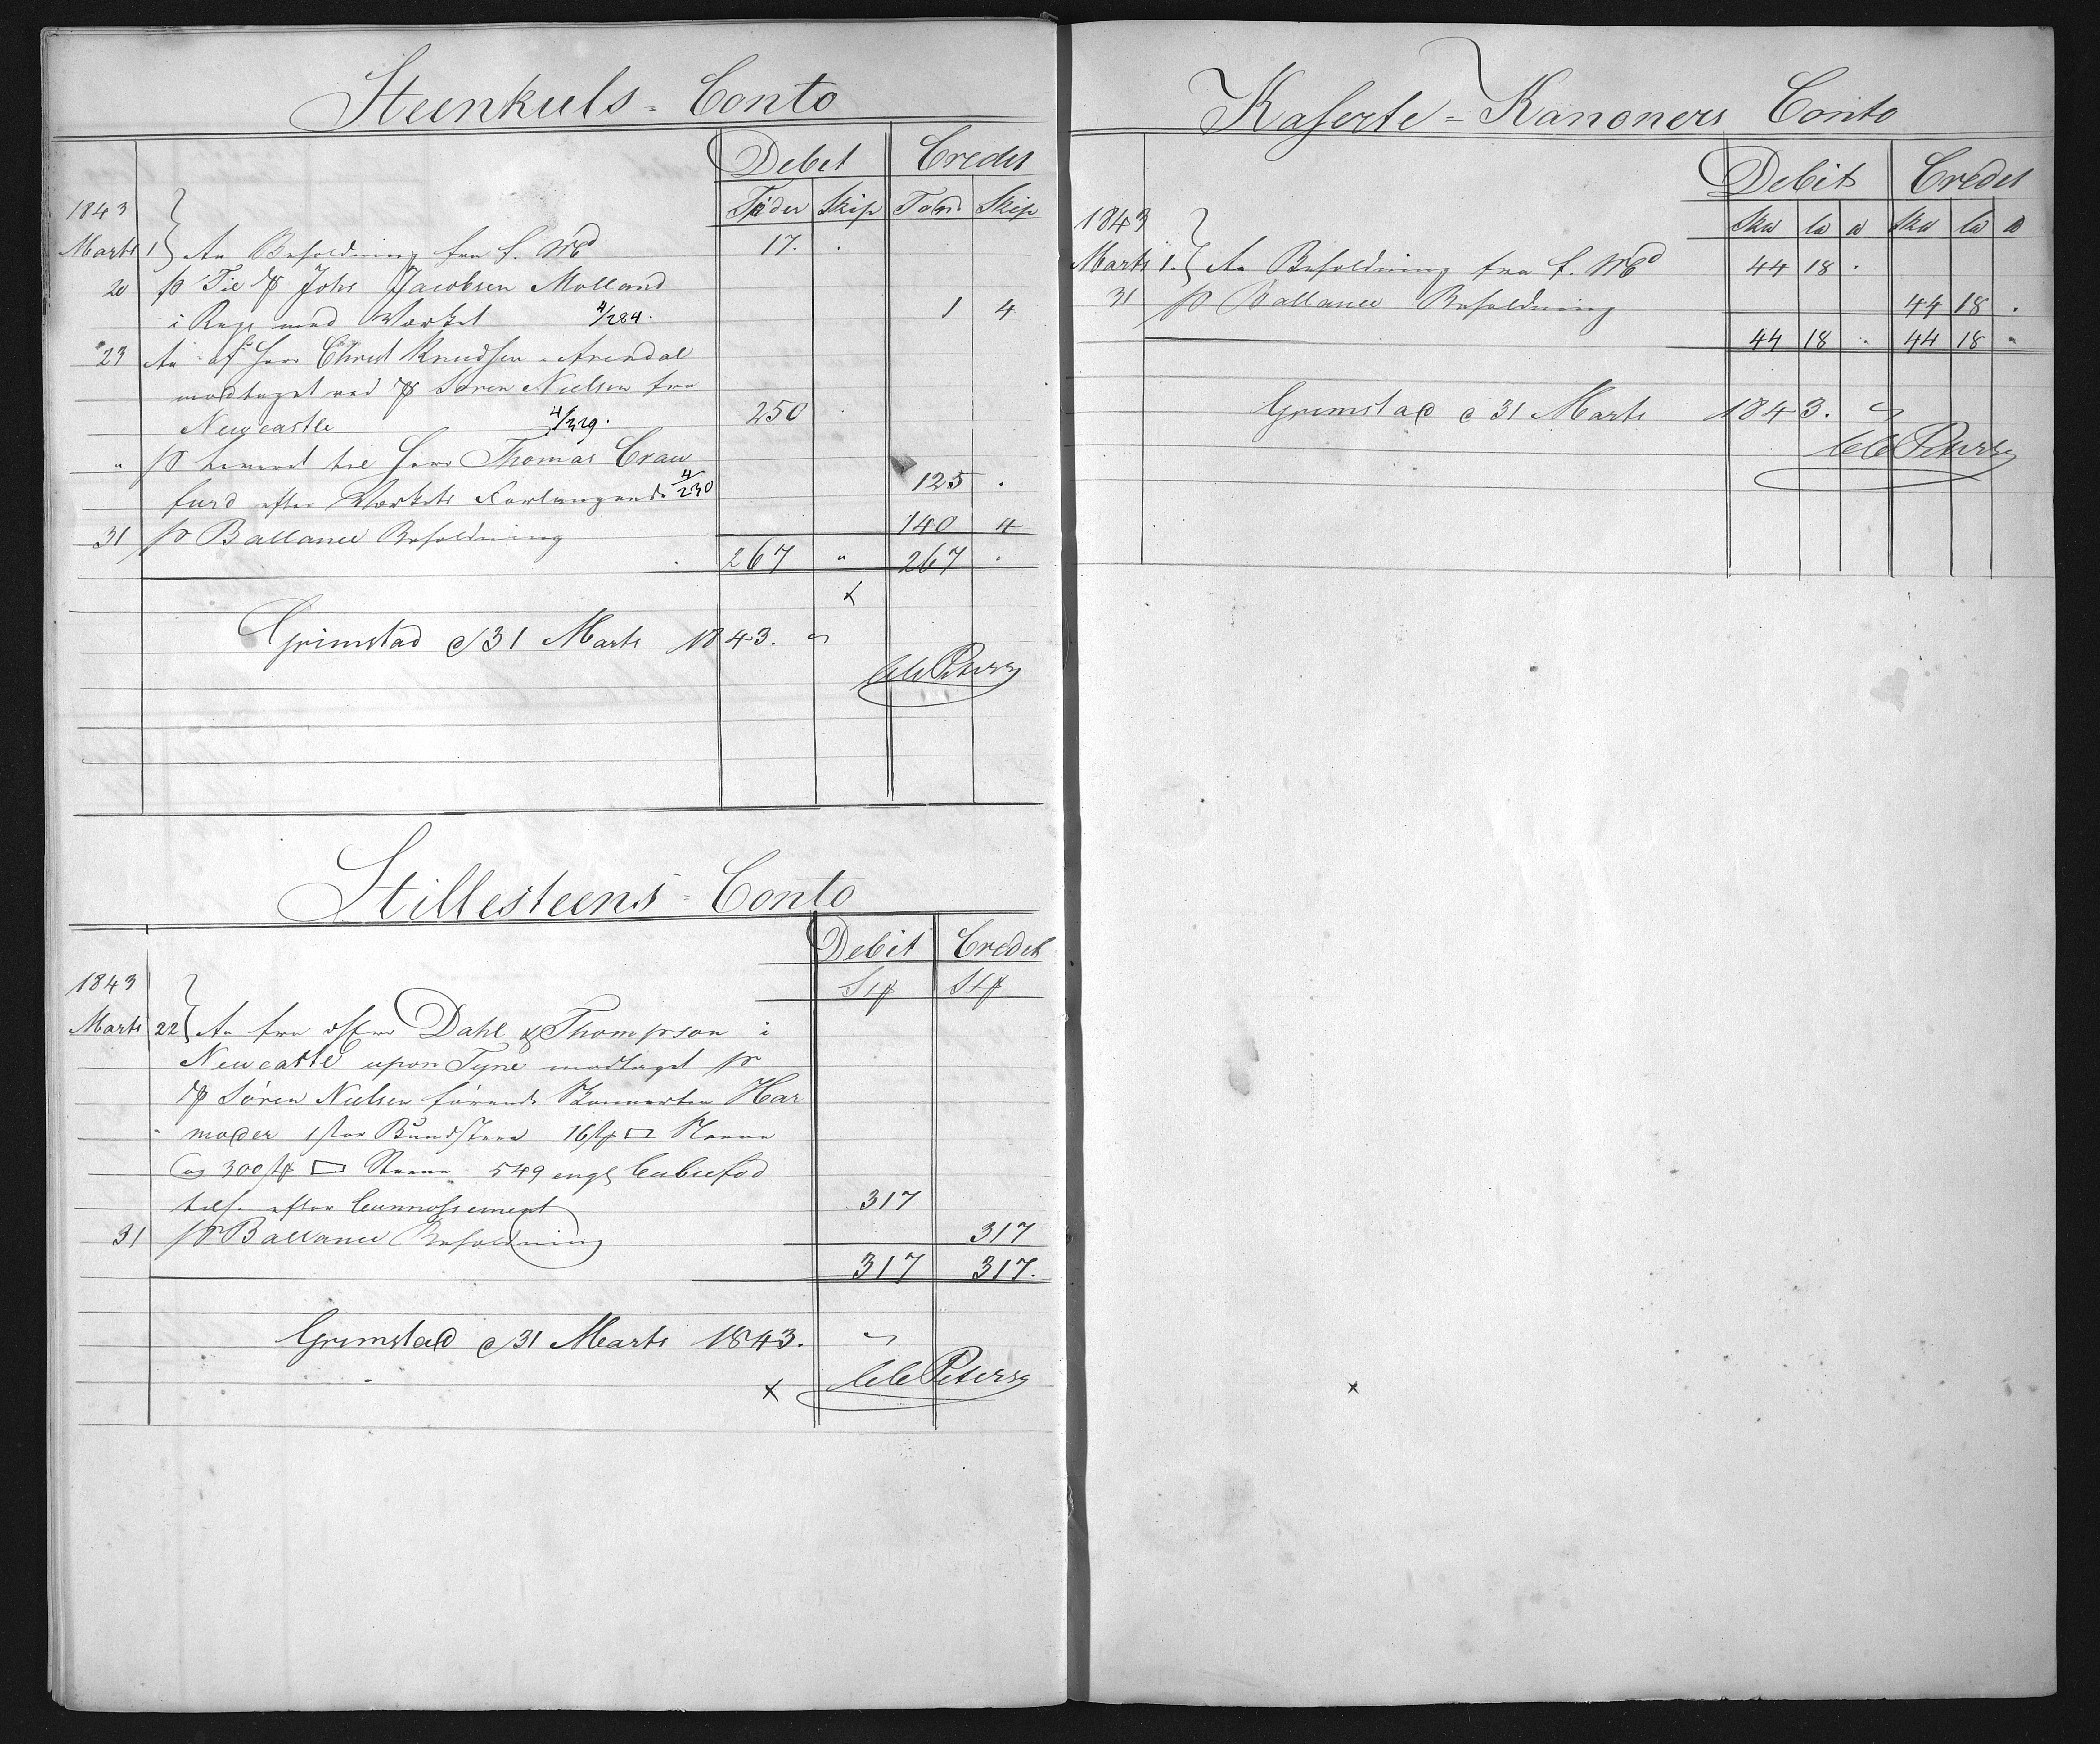 Steenkuls - Conto
Debet Credit
1843 Tønder Skip Tønd. Skip
Marts 1 An Beholdning fra f. Md 17. .
20 pr Til Skp Johs Jacobsen Molland
i Regs med Værket 4/284. 1 4
23 An af Herr Christ Knudsen Arendal
modtaget ved Skp Søren Nielsen fra
Newcastle 4/229. 250 .
" pr leveret til Herr Thomas Crau
furd efter Værkets Forlangende 4/230 125 .
31 pr Ballance Beholdning 140 4
267 " 267 "
x
Grimstad d 31 Marts 1843.
Petersen
Stillesteens - Conto
Debit Credit
1843 Stk Stk
Marts 22 An fra Dahl & Thompson i
Newcastle upon Tyne modtaget pr
Skp Søren Nielsen førende Har
moder Bundsteen 16 Stk
og 300 Stk 549 engl Cubicfod
efter Connossement 317
31 pr Ballance Beholdning 317
317 317.
Grimstad d 31 Marts 1843.
x Petersen
Kaserte - Kanoners Conto
Debit Credit
1843
Marts 1. An Beholdning fra f. Md 44 18 .
31 pr Ballance Beholdning 44 18 .
44 18 . 44 18 "
Grimstad d 31 Marts 1843.
Petersen
x